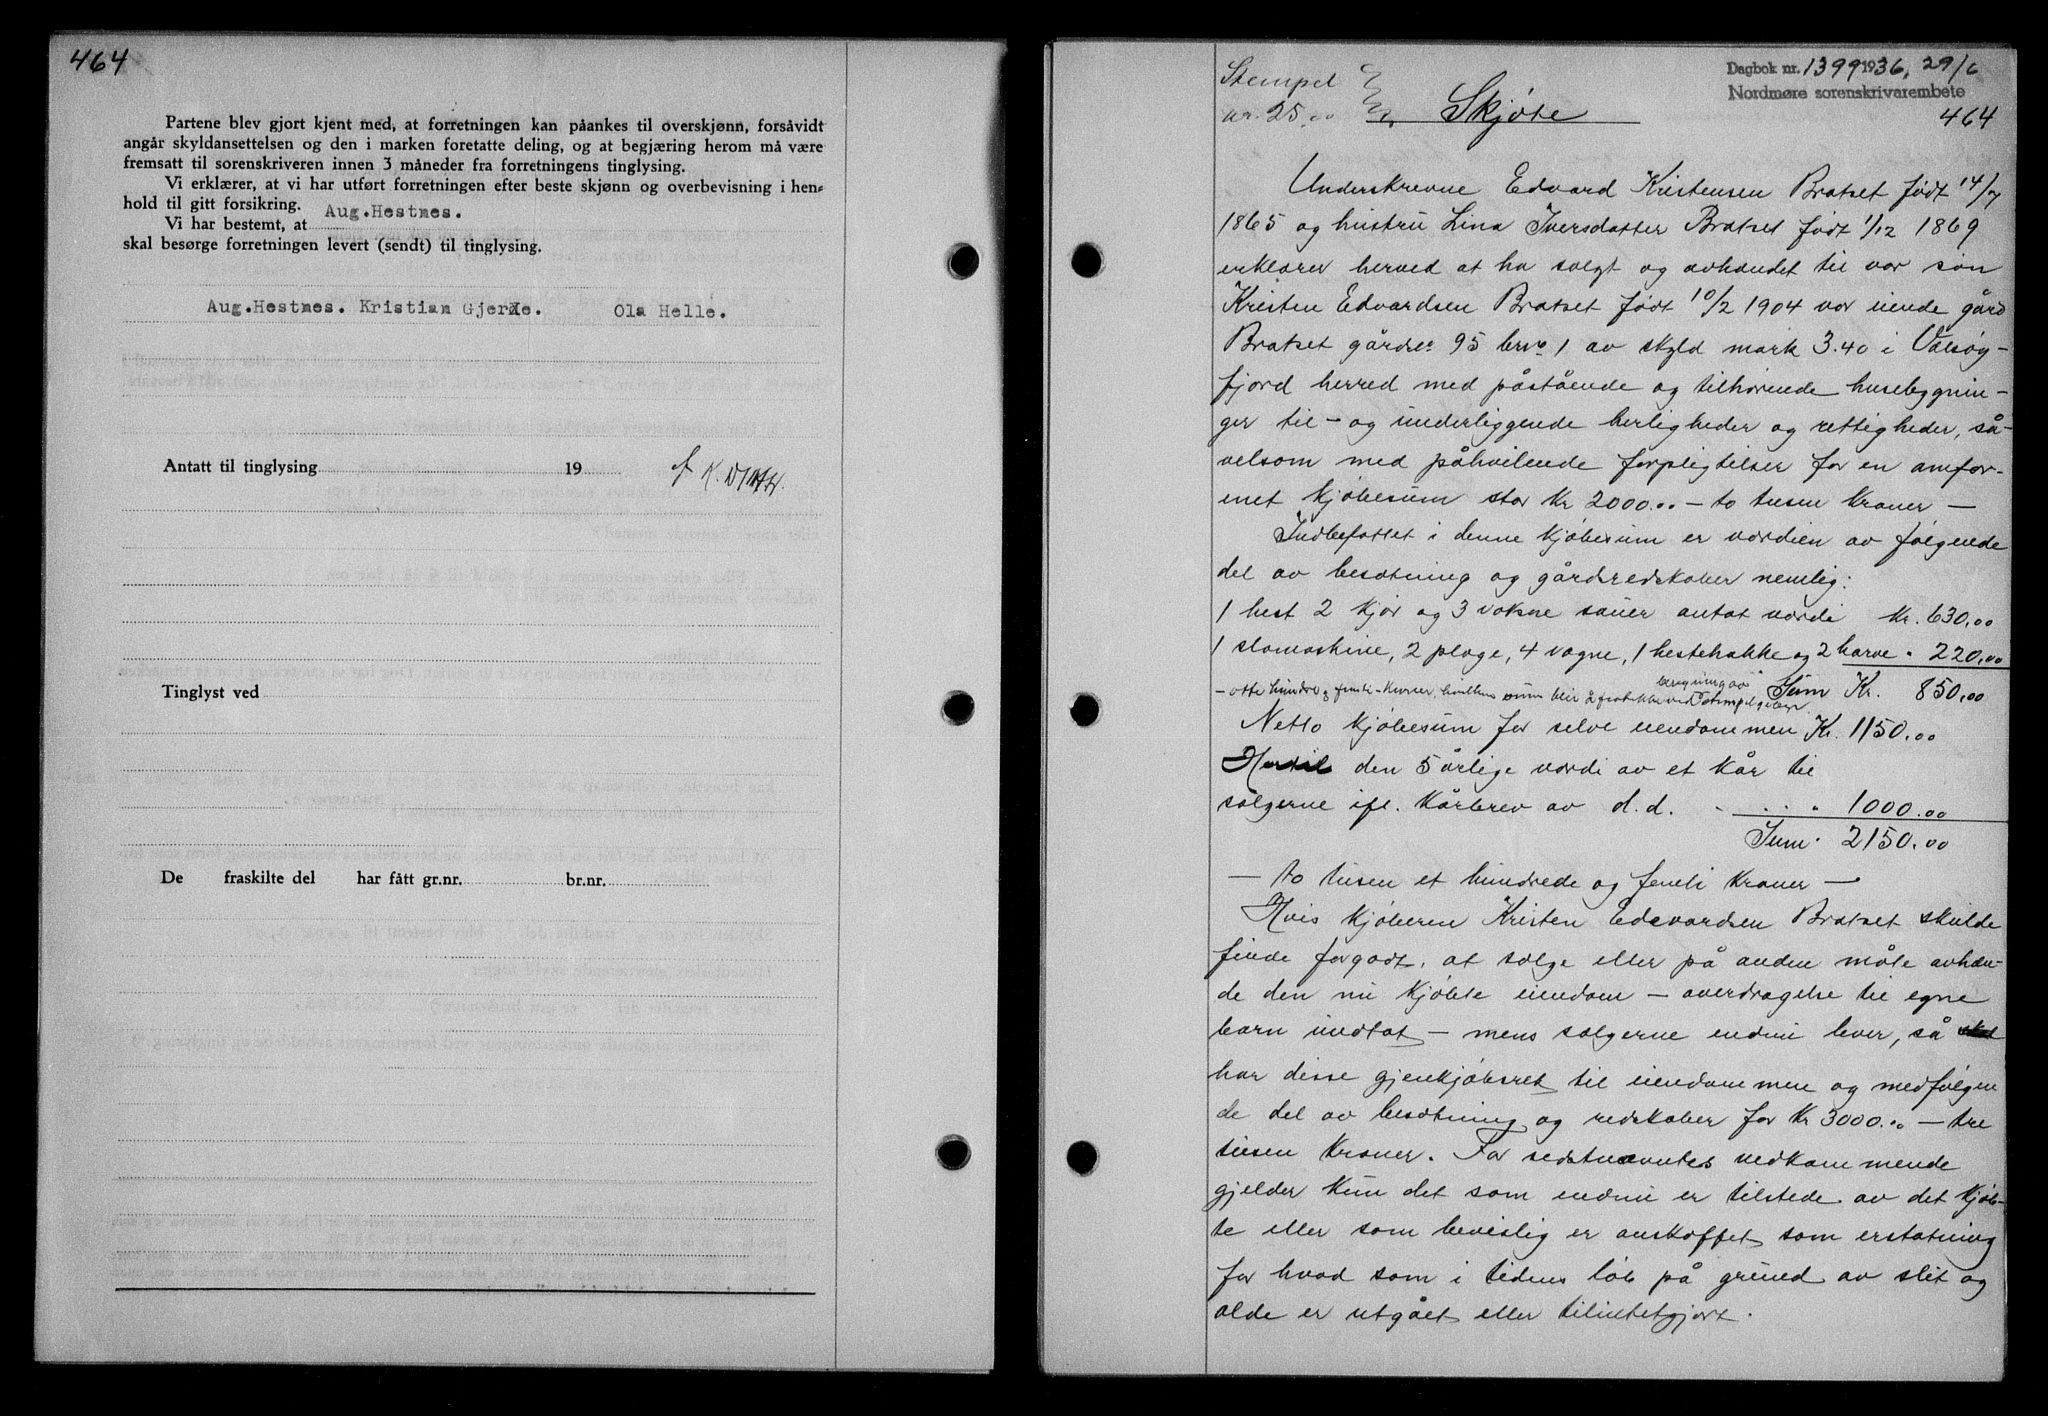 464
Partene blev gjort kjent med, at forretningen kan påankes til overskjønn, forsåvidt
angår skyldansettelsen og den i marken foretatte deling, og at begjæring herom må være
fremsatt til sorenskriveren innen 3 måneder fra forretningens tinglysing.
Vi erklærer, at vi har utført forretningen efter beste skjønn og overbevisning i hen-
hold til gitt forsikring.
Vi har bestemt, at Aug.Hestnes.
skal besørge forretningen levert (sendt) til tinglysing.
Aug.Hestnes. Kristian Gjerde. Ola Helle.
Antatt til tinglysing 19
Tinglyst ved
De fraskilte del har fått gr.nr. br.nr.
Dagbok nr. 1399 1936, 29/6
Nordmøre sorenskrivarembete
464
Stempel
kr. 25.00
Skjøte
Underskrevne Edvard Kristensen Bratset født 14/7
1865 og hustru Lina Iversdatter Bratset født 1/12 1869
erklærer herved at ha solgt og avhændet til vor søn
Kristen Edvardsen Bratset født 10/2 1904 vor eiende gård
Bratset gårdno 95 brno 1 av skyld mark 3.40 i Valsøy-
fjord herred med påstående og tilhørende husebygnin-
ger til- og underliggende herligheder og rettigheder, så-
velsom med påhvilende forpligtelser for en omfor-
enet kjøbesum stor Kr 2000.00 - to tusen kroner -
Indbefattet i denne kjøbesum er værdien av følgende
del av besætning og gårdsredskaber nemlig:
1 hest 2 kjør og 3 voksne sauer antat værdi kr. 630.00
1 slomaskine, 2 ploge, 4 vogne, 1 hesterakke og 2 harve " 220.00
- otte hundre og femti - kroner, hvilken sum blir å fratrekke ved beregning av Stempelgebyr Sum Kr. 850.00
Netto kjøbesum for selve eiendommen Kr. 1150.00
Hertil den 5 årlige værdi av et kår til
sælgerne ifl. kårbrev av d.d. " 1000.00
Sum. 2150.00
- to tusen et hundrede og femti kroner -
Hvis kjøberen Kristen Edvardsen Bratset skulde
finde forgodt, at sælge eller på anden måte avhæn-
de den nu kjøbte eiendom - overdragelse til egne
barn undtat - mens sælgerne endnu lever, så
har disse gjenkjøbsret til eiendommen og medfølgen
de del av besætning og redskaber for Kr 3000.00 - tre
tusen kroner. For sidstnævntes vedkommende
gjelder kun det som endnu er tilstede av det kjøb-
te eller som bevislig er anskaffet som erstatning
for hvad som i tidens løb på grund av slit og
ælde er utgået eller tilintetgjort.